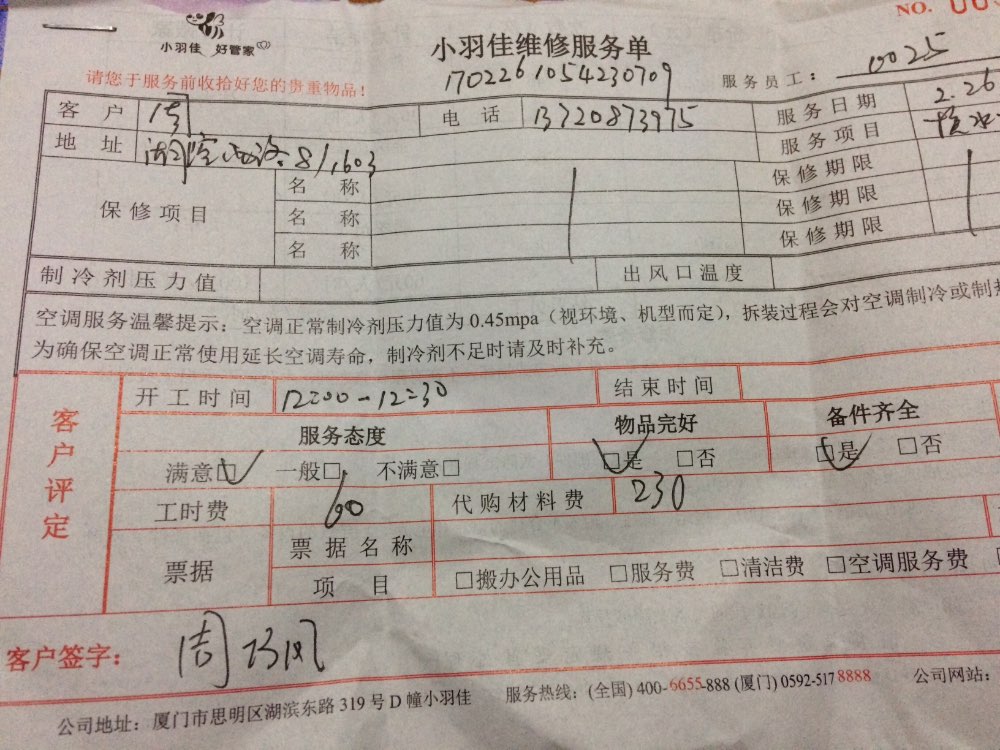 NO. 00
小羽佳 好管家
小羽佳维修服务单
1702261054230709
请您于服务前收拾好您的贵重物品!
服务员工: 0025
客户 电话 13720873975 服务日期 2.26
地址 81,603 服务项目
保修项目 名称 保修期限
名称 保修期限
名称 保修期限
制冷剂压力值 出风口温度
空调服务温馨提示:空调正常制冷剂压力值为0.45mpa(视环境、机型而定),拆装过程会对空调制冷或制热
为确保空调正常使用延长空调寿命,制冷剂不足时请及时补充。
客户评定
开工时间 12:00-12:30 结束时间
服务态度 物品完好 备件齐全
满意□ 一般□ 不满意□ □是 □否 □是 □否
工时费 60 代购材料费 230
票据 票据名称
项目 □搬办公用品 □服务费 □清洁费 □空调服务费
客户签字: 周巧凤
公司地址:厦门市思明区湖滨东路319号D幢小羽佳 服务热线:(全国) 400-6655-888 (厦门) 0592-5178888 公司网站: